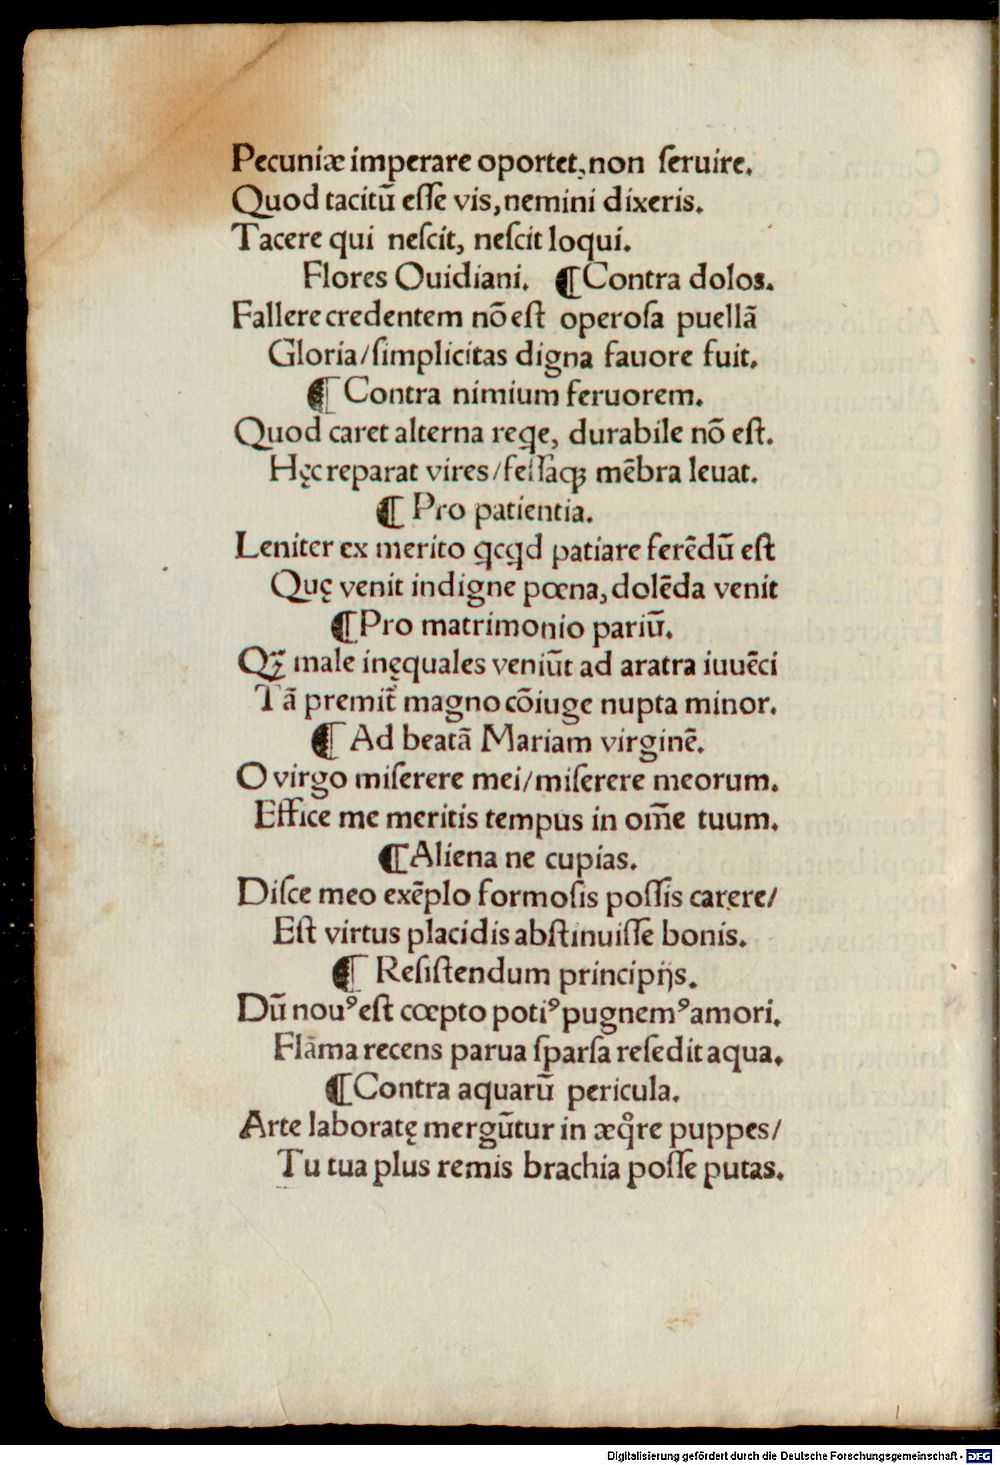 Pecuniæ imperare oportet, non ſeruire.
Quod tacitū eſſe vis, nemini dixeris.
Tacere qui neſcit, neſcit loqui.
Flores Ouidiani. ¶ Contra dolos.
Fallere credentem nō eſt operoſa puellā
Gloria/ſimplicitas digna fauore fuit.
¶ Contra nimium feruorem.
Quod caret alterna reqe, durabile nō eſt.
Hęc reparat vires/feſſaqꝫ mēbra leuat.
¶ Pro patientia.
Leniter ex merito qcqd patiare ferēdū eſt
Quę venit indigne pœna, dolēda venit
¶ Pro matrimonio pariū.
Qꝫ̄ male inęquales veniūt ad aratra iuuēci
Tā premit̄ magno cōiuge nupta minor.
¶ Ad beatā Mariam virginē.
O virgo miſerere mei/miſerere meorum.
Effice me meritis tempus in om̄e tuum.
¶ Aliena ne cupias.
Diſce meo exēplo formoſis poſſis carere/
Eſt virtus placidis abſtinuiſſe bonis.
¶ Reſiſtendum principijs.
Dū nouꝰ eſt cœpto potiꝰ pugnemꝰ amori.
Flāma recens parua ſparſa reſedit aqua.
¶ Contra aquarū pericula.
Arte laboratę mergūtur in æqͦre puppes/
Tu tua plus remis brachia poſſe putas.
Digitalisierung gefördert durch die Deutsche Forschungsgemeinschaft - DFG